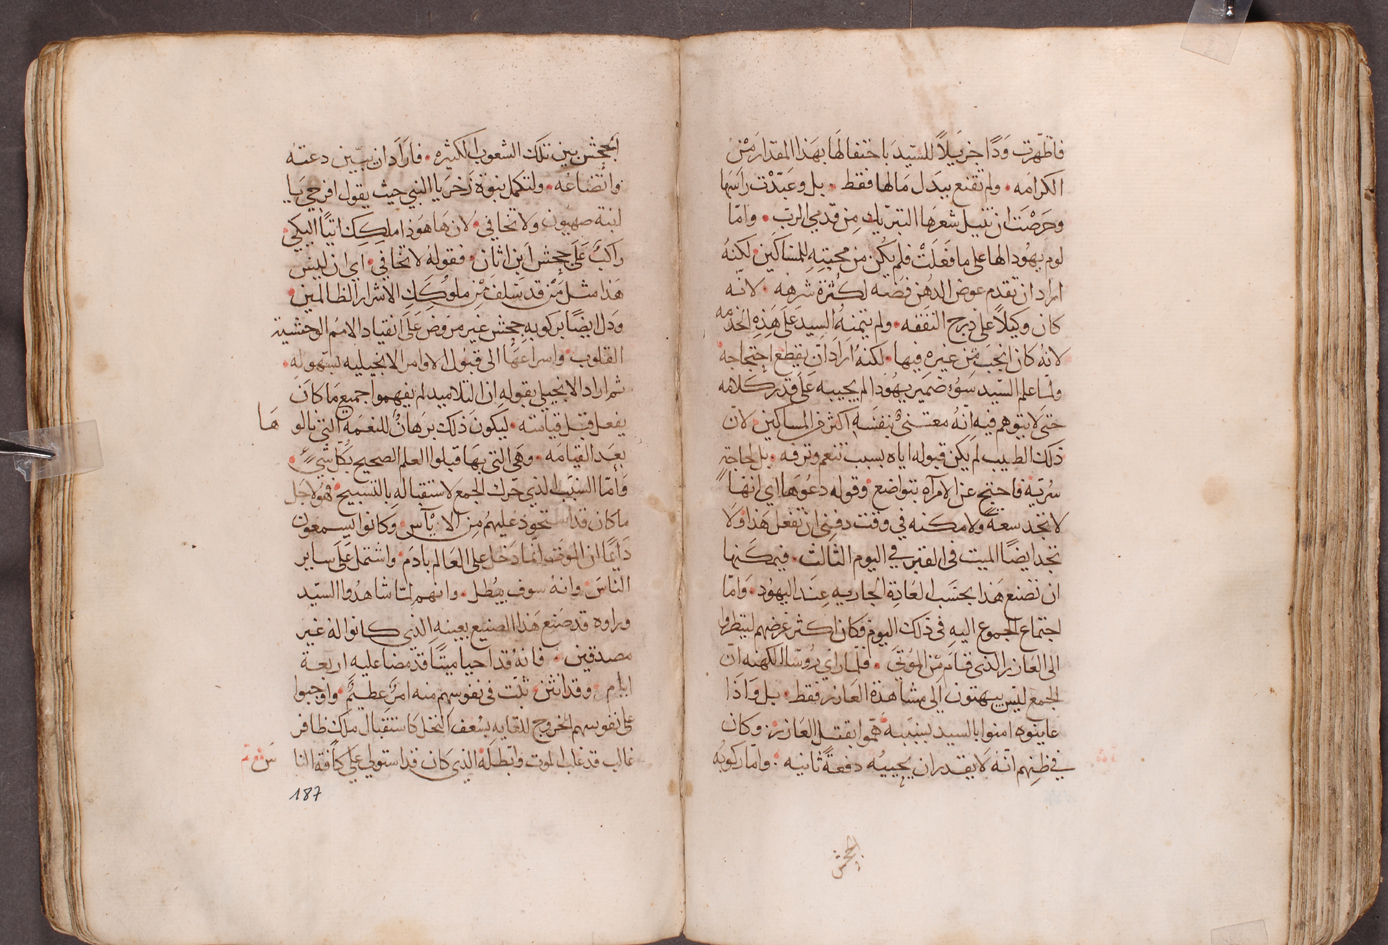 فاظهرت ودًا جزيلاً للسيد باحتفالها بهذا المقدار من
الكرامه • ولم تقنع ببدل مالها فقط • بل وعبّدت راسها
وحرصت ان تنيل شعرها التبريك من قدمي الرب • وامّا
لوم يهودا لها على ما فعلت فلم يكن من محبته للمساكين • لكنه
اراد ان تقدم عوض الدهن فضته لكثرة شرهه • لانه
كان وكيلاً على درج النفقه • ولم يتمنه السيد على هذه الخدمه
لانه كان انجب من غيره فيها • لكنه اراد ان يقطع احتجاجه
ولما علم السيد سوء ضمير يهودا لم يجيبه على قدر كلامه
حتى لا يتوهم فيه انه معتني بنفسه اكثر من المساكين • لان
ذلك الطيب لم يكن قبوله اياه بسبب تنعم وترفه • بل لحاجة
سُريّه فاحتج عن الامرآه بتواضع • وقوله دعوها اي انها
لا تجد سعةً ولا مكنه في وقت دفني ان تفعل هذا ولا
تجد ايضًا الميت في القبر في اليوم الثالث • فيمكنها
ان تصنع هذا بحسب العادة الجاريه عند اليهود • وامّا
اجتماع الجموع اليه في ذلك اليوم فكان اكثر غرضهم لينظروا
الى العازر الذي قام من الموتى • فلما راي روسا الكهنه ان
الجمع ليس يبهتون الي مشاهدة العازر فقط • بل واذا
عاينوه امنوا بالسيد بسببه همّوا بقتل العازر • وكان
في ظنهم انه لا يقدر ان يحييه دفعةً ثانيه • وامّا ركوبه
الجحش
الجحش بين تلك الشعوب الكثيره • فاراد ان يبين دعته
واتضاعه • ولتكمل نبوة زخريا النبي حيث يقول افرحي يا
ابنة صهيون ولا تخافي • لان ها هوذا ملككِ اتيًا اليكي
راكبً على جحش ابن اتان • فقوله لا تخافي • اي ان ليس
هذا مثل من قد سلف من ملوككِ الاشرار الظالمين •
ودل ايضًا بركوبه جحش غير مروض على انقياد الامم الوحشية
القلوب • واسراعها الى قبول الاوامر الانجيليه بسهوله •
ثم اراد الانجيلي بقوله ان التلاميد لم يفهموا جميع ما كان
يفعل قبل قيامته • ليكون ذلك برهانٌ للنعمة التي نالوها
بعد القيامه • وهي التي بها قبلوا العلم الصحيح بكل شيء •
وامّا السبب الذي حرك الجمع لاستقباله بالتسبيح فهو لاجل
ما كان قد استحود عليهم من الاياس • وكانوا يسمعون
دايمًا ان الموت انما دخل على العالم بادم • واشتمل على ساير
الناس • وانه سوف يبطل • وانهم لما شاهدوا السيد
وراوه قد صنع هذا الصنيع بعينه الذي كانوا له غير
مصدقين • فانه قد احيا ميتًا قد مضا عليه اربعة
ايام • وقد انتن • ثبت في نفوسهم منه امرٌ عظيمٌ • واوجبوا
على نفوسهم الخروج للقايه بسعف النخل كاستقبال ملك ظافر
غالب قد غلب الموت وابطله الذي كان قد استولي على كافة النا
س
187